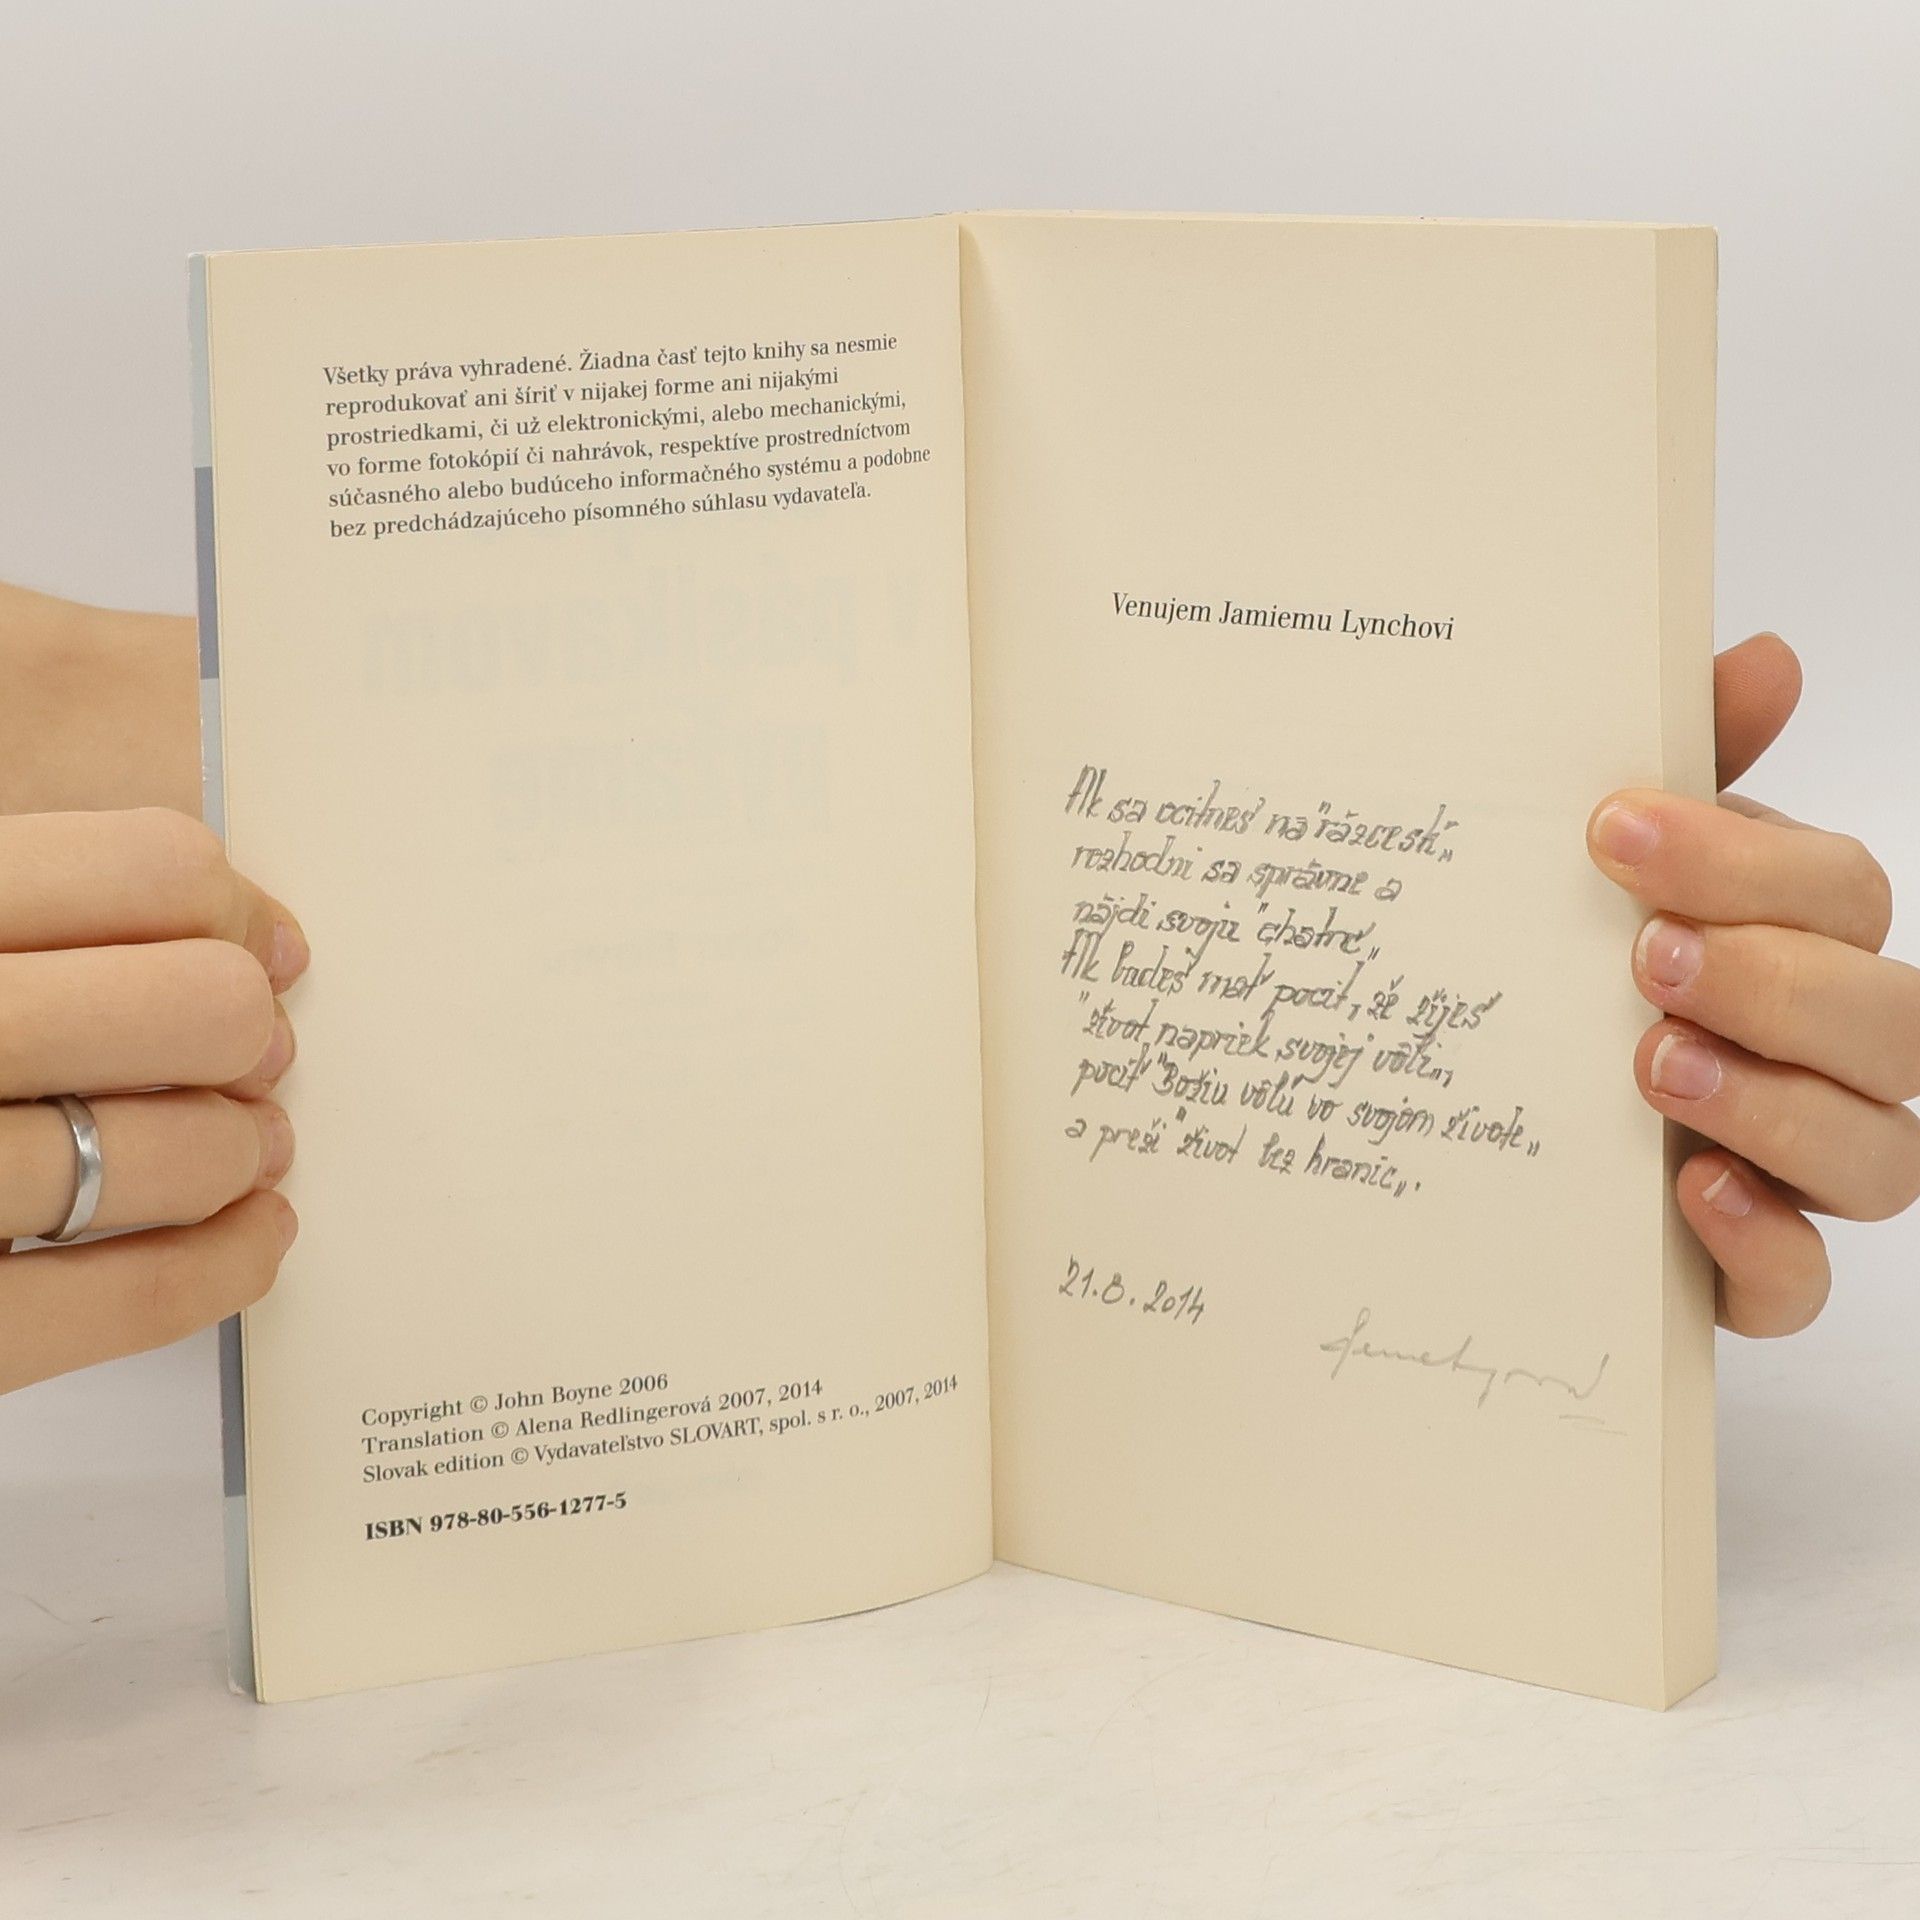 Všetky práva vyhradené. Žiadna časť tejto knihy sa nesmie
reprodukovať ani šíriť v nijakej forme ani nijakými
prostriedkami, či už elektronickými, alebo mechanickými,
vo forme fotokópií či nahrávok, respektíve prostredníctvom
súčasného alebo budúceho informačného systému a podobne
bez predchádzajúceho písomného súhlasu vydavateľa.
Copyright © John Boyne 2006
Translation © Alena Redlingerová 2007, 2014
Slovak edition © Vydavateľstvo SLOVART, spol. s r. o., 2007, 2014
ISBN 978-80-556-1277-5
Venujem Jamiemu Lynchovi
Ak sa ocitneš na "rázcestí„
rozhodni sa správne a
nájdi svoju "chatrč„
Ak budeš mať pocit, že žiješ
"život napriek svojej vôli„,
pociť "Božiu vôľu vo svojom živote„
a preži "život bez hraníc„.
21.8.2014